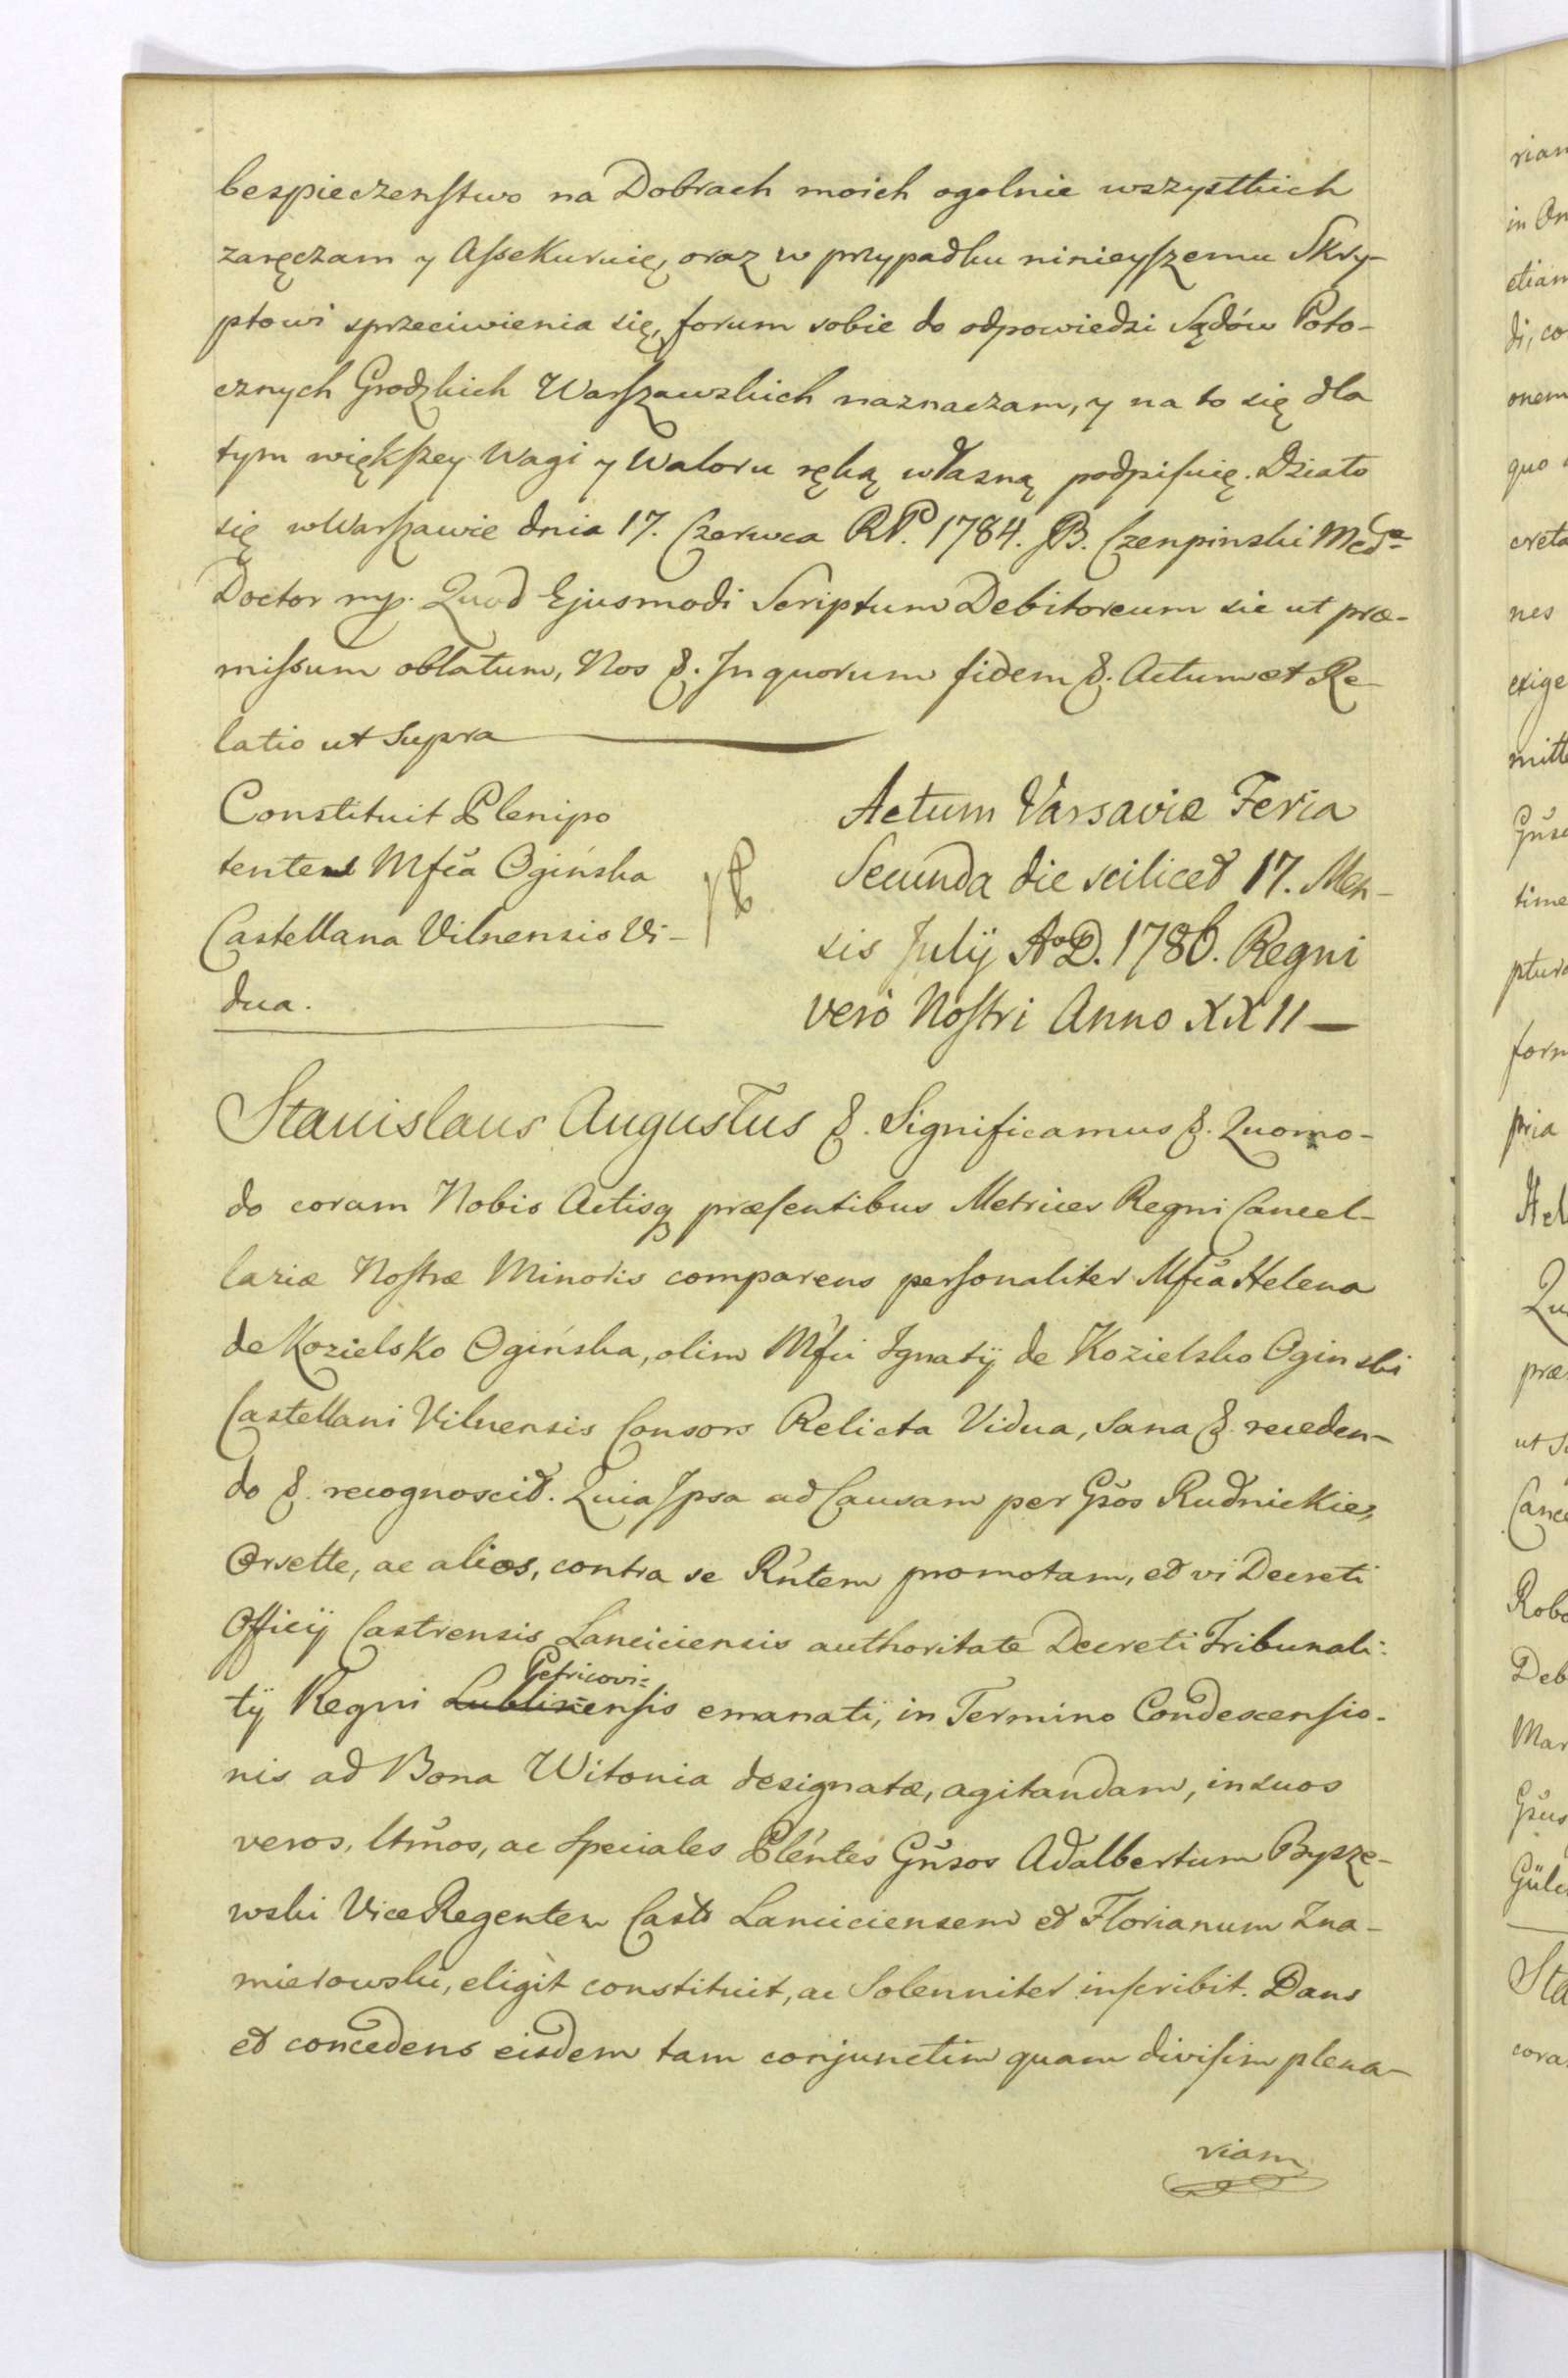 bespieczenſtwo na Dobrach moich ogolnie wszystkich
zaręczam y Aſsekuruię, oraz w przypadku ninieyſzemu Skry-
ptowi sprzeciwienia się, forum sobie do odpowiedzi Sądów Poto-
cznych Grodzkich Warſzawskich naznaczam, y na to się dla
tym więkſzey Wagi y Waloru ręką własną podpiſuię. Działo
się w Warſzawie dnia 17. Czerwca RP. 1784. JB. Czenpinski Med:
Doctor mp. Quod Ejusmodi Scriptum Debitoreum sic ut præ-
miſsum oblatum, Nos &. In quorum fidem &. Actum et Re-
latio ut Supra
Constituit Plenipo
tentes Mfca Ogińska
Castellana Vilnensis Vi-
dua.
Actum Varsaviæ Feria
Secunda die scilicet 17. Men-
sis Julÿ AoD. 1786. Regni
verò Noſtri Anno XXII
Stanislaus Augustus &. Significamus &. Quomo-
do coram Nobis Actisq præſentibus Metrices Regni Cancel-
lariæ Noſtræ Minoris comparens perſonaliter Mfca Helena
de Kozielsko Ogińska, olim Mfci Ignatÿ de Kozielsko Oginski
Castellani Vilnensis Consors Relicta Vidua, Sana &. receden-
do &. recognoscit. Quia Ipsa ad Causam per Gsos Rudnickie,
Orsette, ac alios, contra se Rntem promotam, et vi Decreti
Officÿ Castrensis Lanciciensis authoritate Decreti Tribunali:
Petricovi=
tÿ Regni Lublinenſis emanati, in Termino Condescenſio-
nis ad Bona Witonia designatæ, agitandam, in suos
veros, ltmos, ac Speciales Plentes Gnsos Adalbertum Bysze-
wski Vice Regentem Casts Lanciciensem et Florianum Zna-
mierowski, eligit constituit, ac Solenniter inſcribit. Dans
et concedens eisdem tam conjunctim quam diviſim plena-
viam